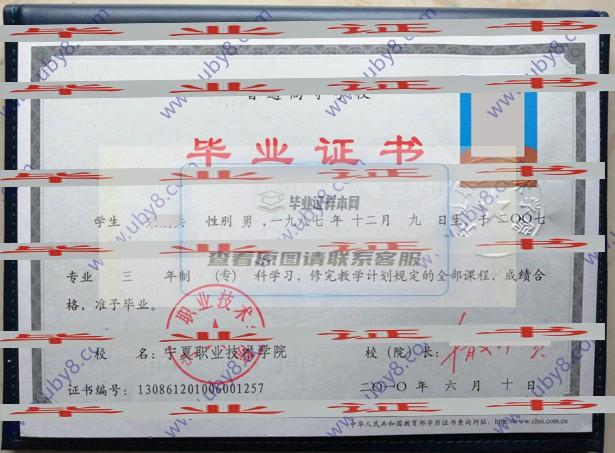 毕业证书
毕业证样本网
学生 性别 男，一九八七年 十二月 九 日生，于二〇〇七
查看原图请联系客服
专业 三 年制 （专） 科学习，修完教学计划规定的全部课程，成绩合
格，准予毕业。
职业技术
校 名：宁夏职业技术学院 校（院）长：
证书编号：130861201006001257 二〇一〇 年 六 月 十 日
中华人民共和国教育部学历证书查询网址：http://www.chsi.com.cn
www.uby8.com
毕业证书